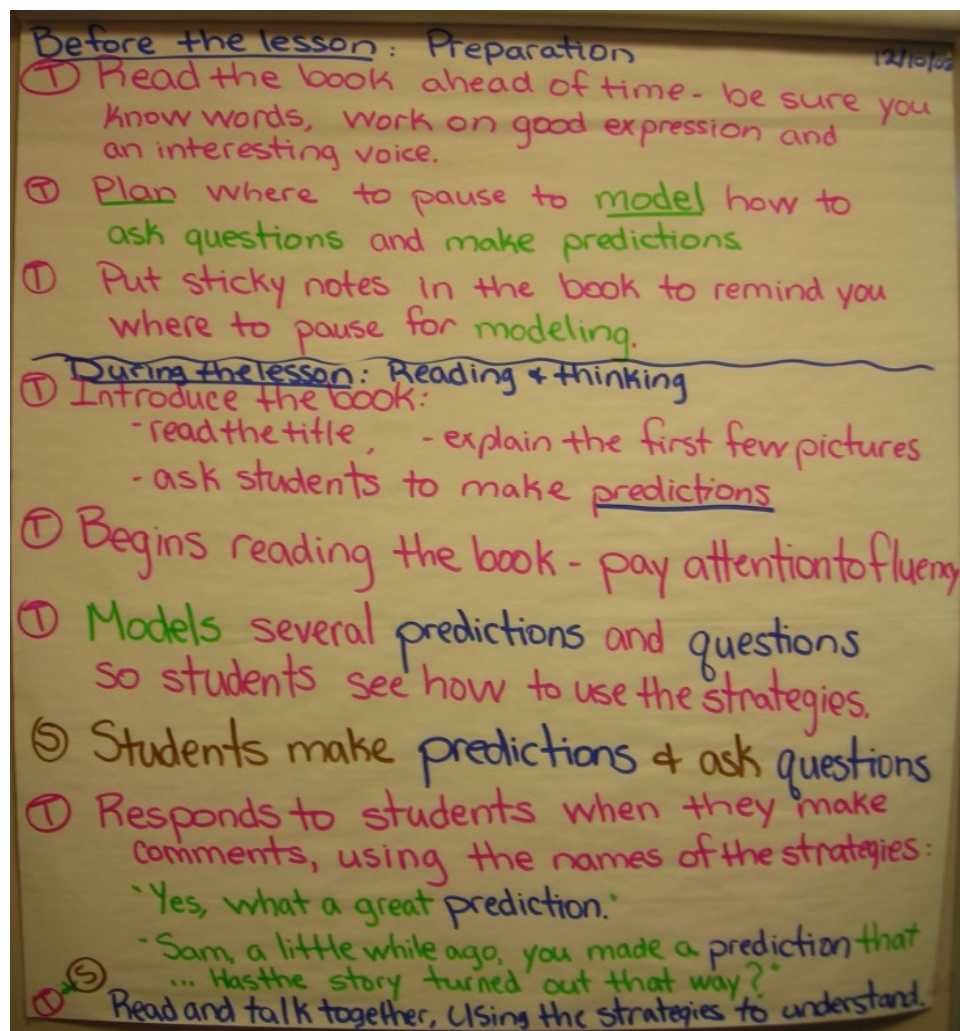 Before the lesson: Preparation
12/10/02
T Read the book ahead of time - be sure you
know words, work on good expression and
an interesting voice.
T Plan where to pause to model how to
ask questions and make predictions
T Put sticky notes in the book to remind you
where to pause for modeling.
During the lesson: Reading & thinking
T Introduce the book:
- read the title, - explain the first few pictures
- ask students to make predictions
T Begins reading the book - pay attention to fluency
T Models several predictions and questions
so students see how to use the strategies.
S Students make predictions & ask questions
T Responds to students when they make
comments, using the names of the strategies:
"Yes, what a great prediction."
"Sam, a little while ago, you made a prediction that
... Has the story turned out that way?"
S
T Read and talk together, Using the strategies to understand.